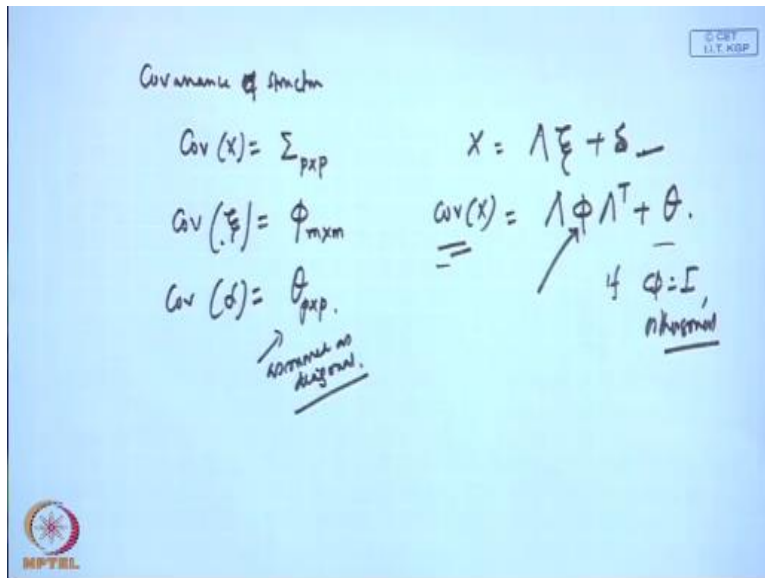 © CET
I.I.T. KGP
Covariance of structur
Cov (x) = Σ pxp
Cov (ξ) = φ mxm
Cov (δ) = θ pxp.
assumed as
diagonal.
X = Λξ + δ
Cov(X) = ΛφΛᵀ + θ.
if φ = I,
orthogonal
NPTEL